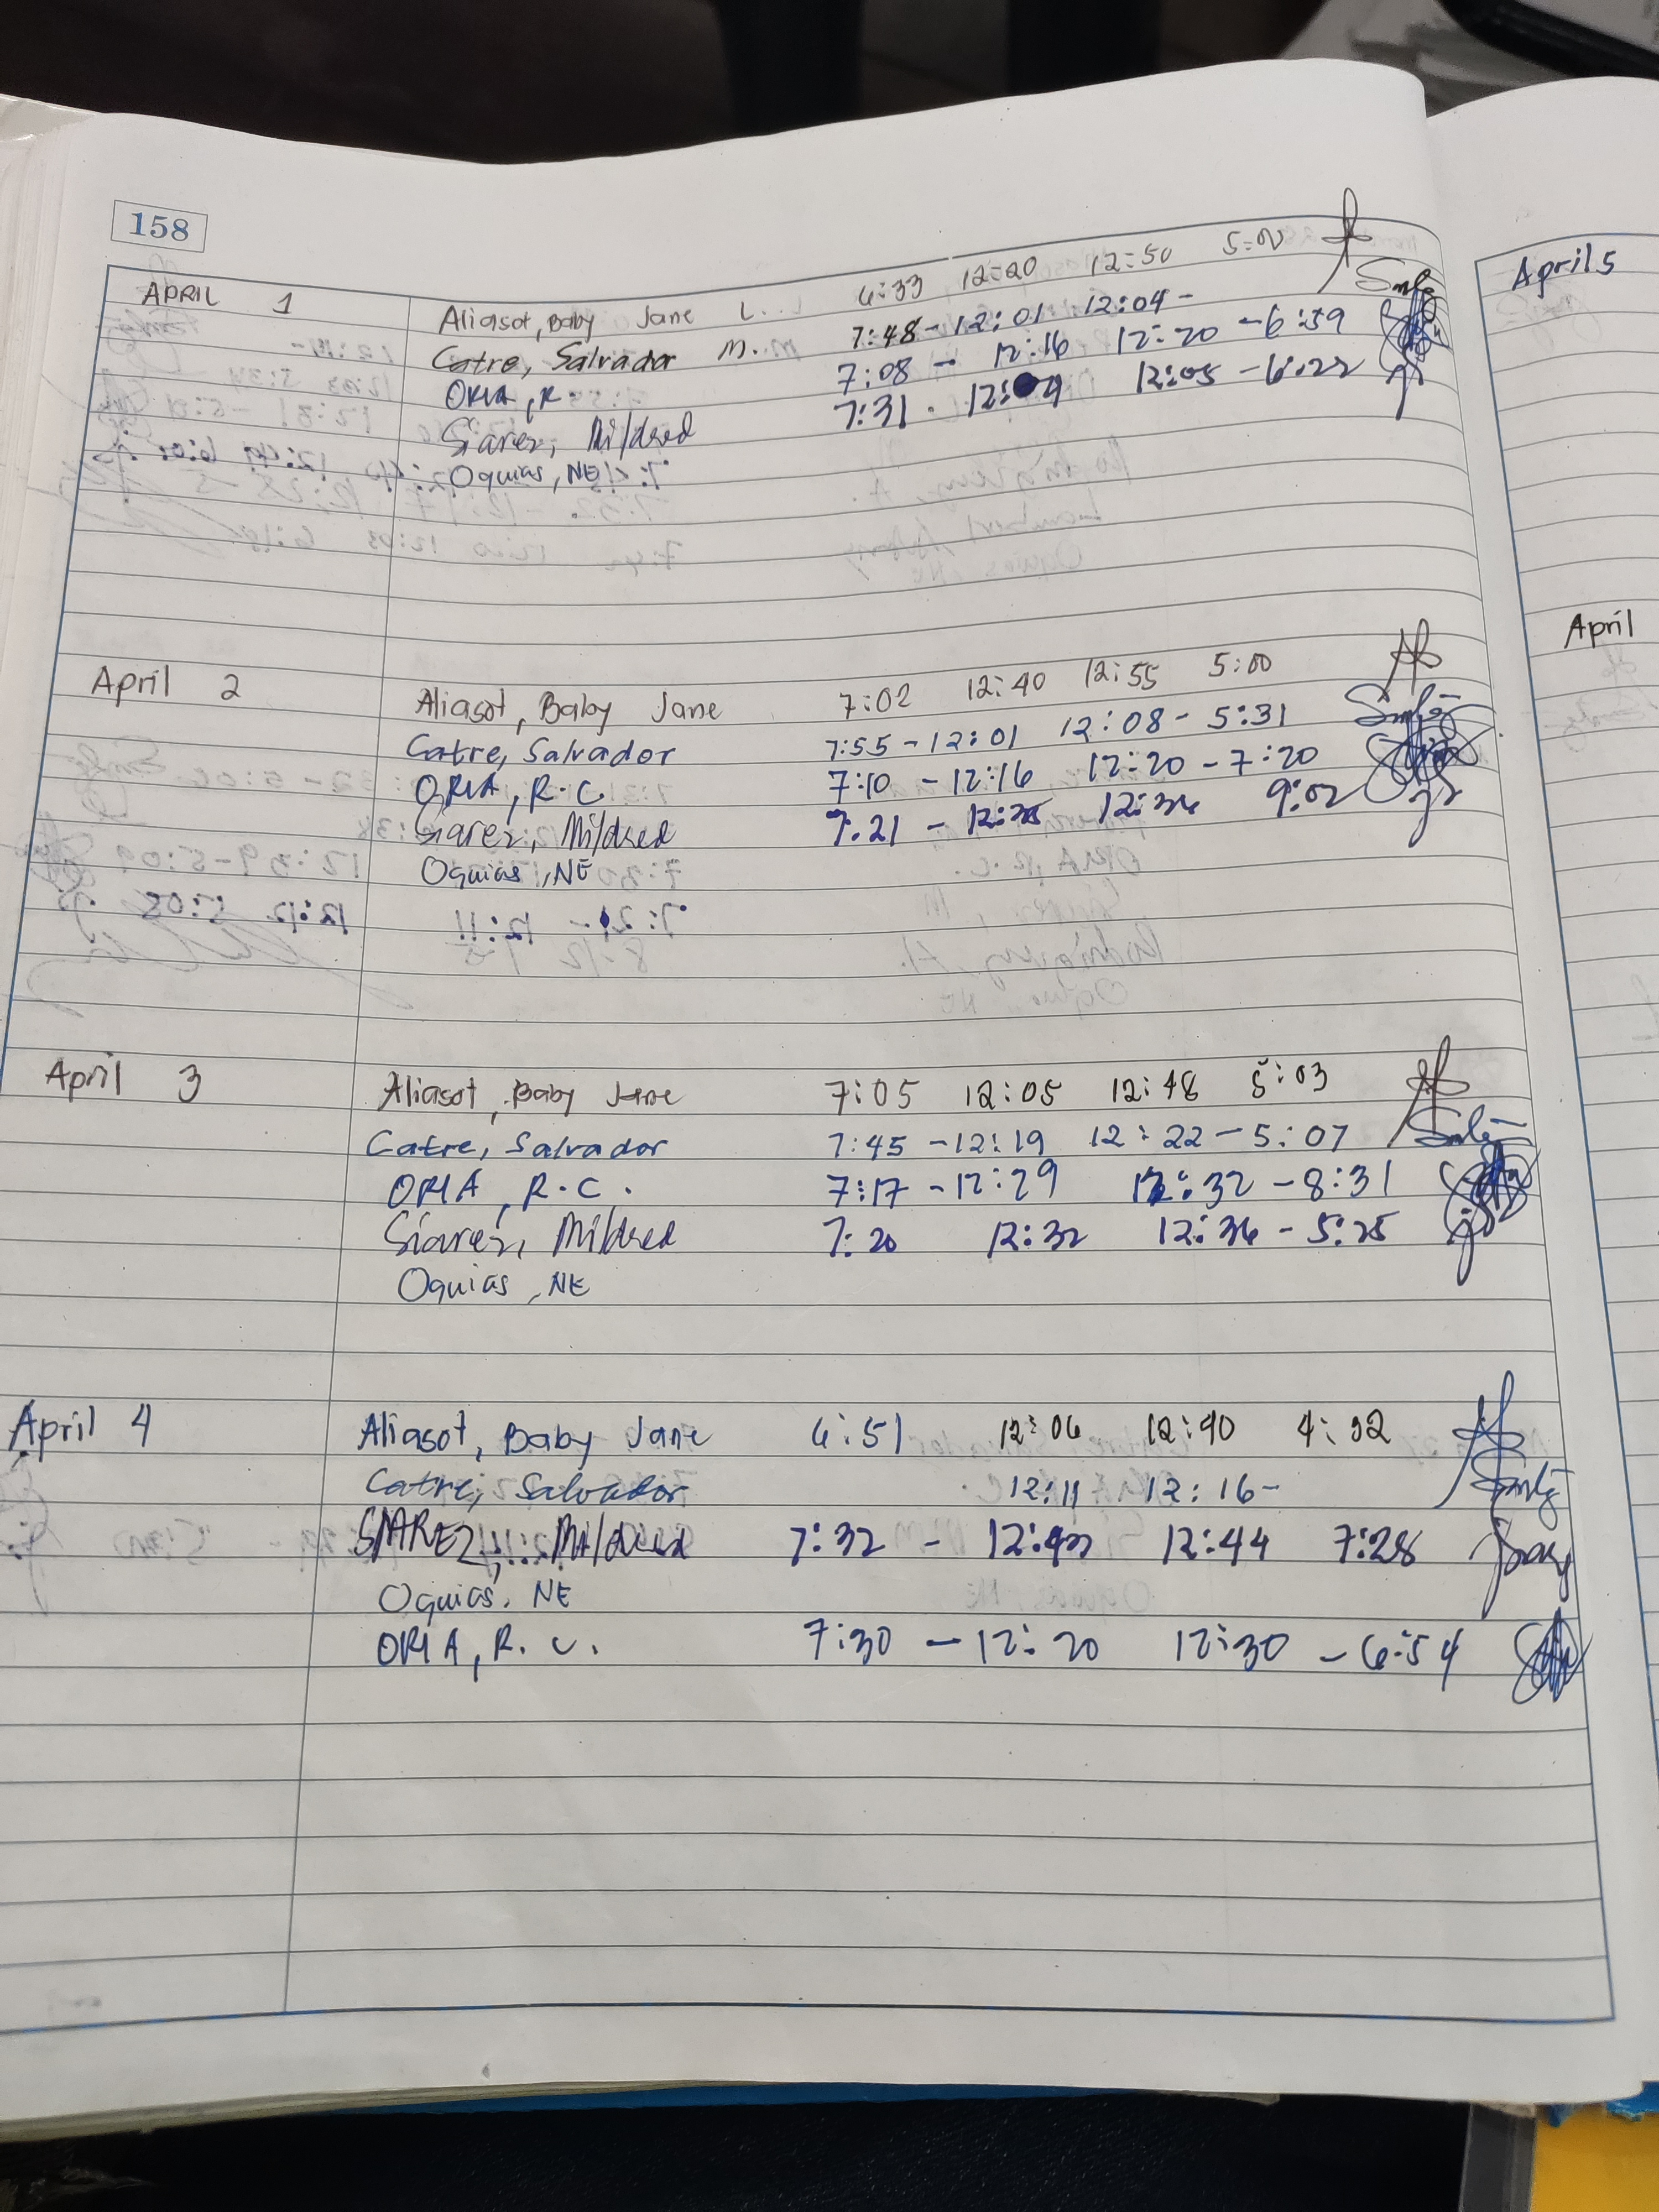 158
APRIL 1
Aliasot, Baby Jane L. 6:33 12:20 12:50 5:00
Catre, Salvador M. 7:48 - 12:01 12:04 -
ORIA, R. 7:08 - 12:16 12:20 - 6:59
Siarez, Mildred 7:31 - 12:09 12:05 - 6:22
Oquias, NE
April 2
Aliasot, Baby Jane 7:02 12:40 12:55 5:00
Catre, Salvador 7:55 - 12:01 12:08 - 5:31
ORIA, R.C. 7:10 - 12:16 12:20 - 7:20
Siarez, Mildred 7:21 - 12:36 9:02
Oquias, NE
April 3
Aliasot, Baby Jane 7:05 12:05 12:48 5:03
Catre, Salvador 7:45 - 12:19 12:22 - 5:07
ORIA, R.C. 7:17 - 12:29 12:32 - 8:31
Siarez, Mildred 7:20 12:32 12:36 - 5:25
Oquias, NE
April 4
Aliasot, Baby Jane 6:51 12:06 12:40 4:32
Catre, Salvador 12:11 12:16 -
SIAREZ, Mildred 7:32 - 12:42 12:44 7:28
Oquias, NE
ORIA, R.C. 7:30 - 12:20 12:30 - 6:54
April 5
April